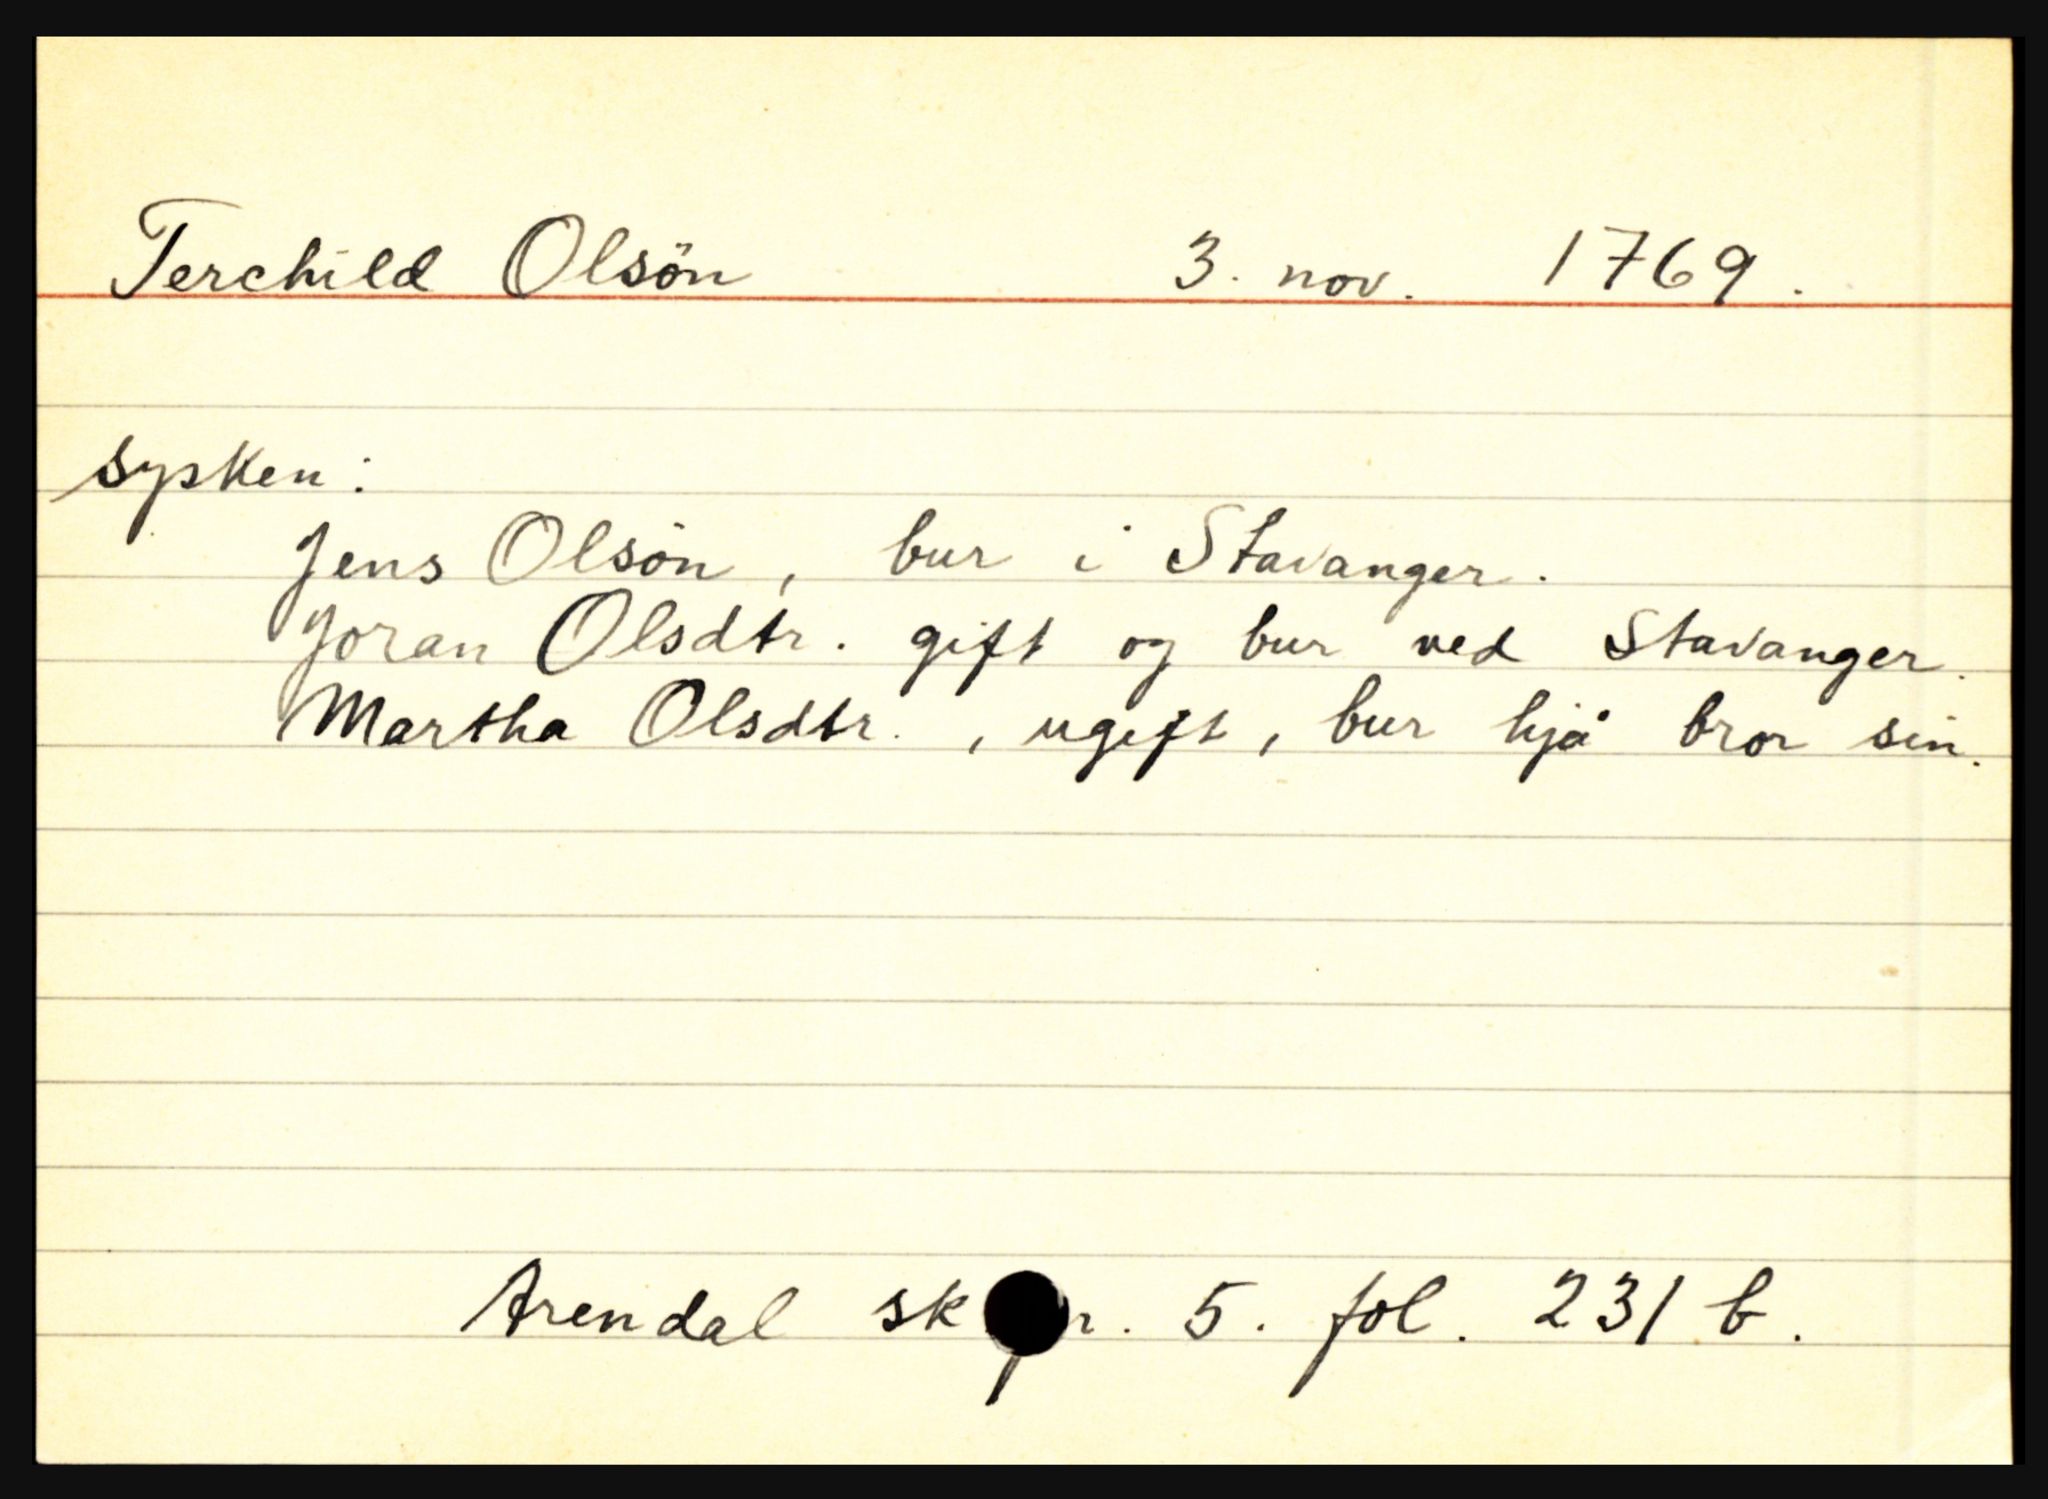 Terchild Olsön 3. nov. 1769.
sysken:
Jens Olsön, bur i Stavanger.
Joran Olsdtr. gift og bur ved Stavanger.
Martha Olsdtr., ugift, bur hjå bror sin.
Arendal 5. fol. 231 b.